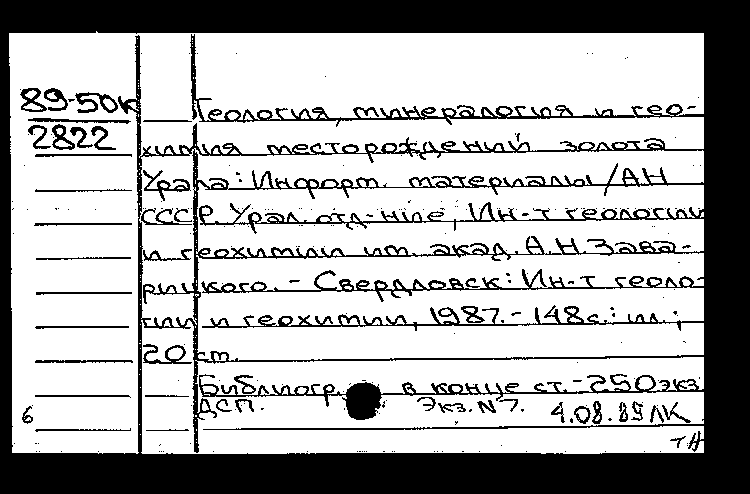 89-50к Геология, минералогия и гео-
2822 химия месторождений золота
Урала: Информ. материалы /АН
СССР. Урал. отд-ние, Ин-т геологии
и геохимии им. акад. А.Н. Зава-
рицкого. - Свердловск: Ин-т геоло-
гии и геохимии, 1987. - 148с.: ил.;
20 см.
Библиогр. в конце ст. - 250 экз
6 ДСП. Экз. N 7. 4.08.89 ЛК
тн